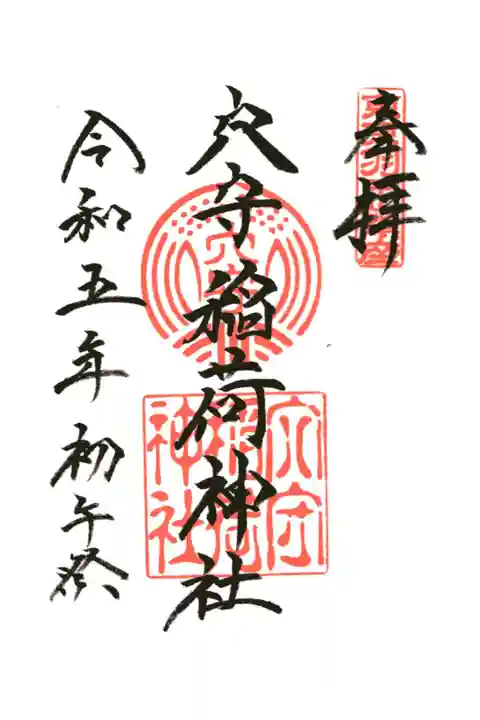 奉拝
穴守稲荷神社
令和五年初午祭
穴守稲荷神社